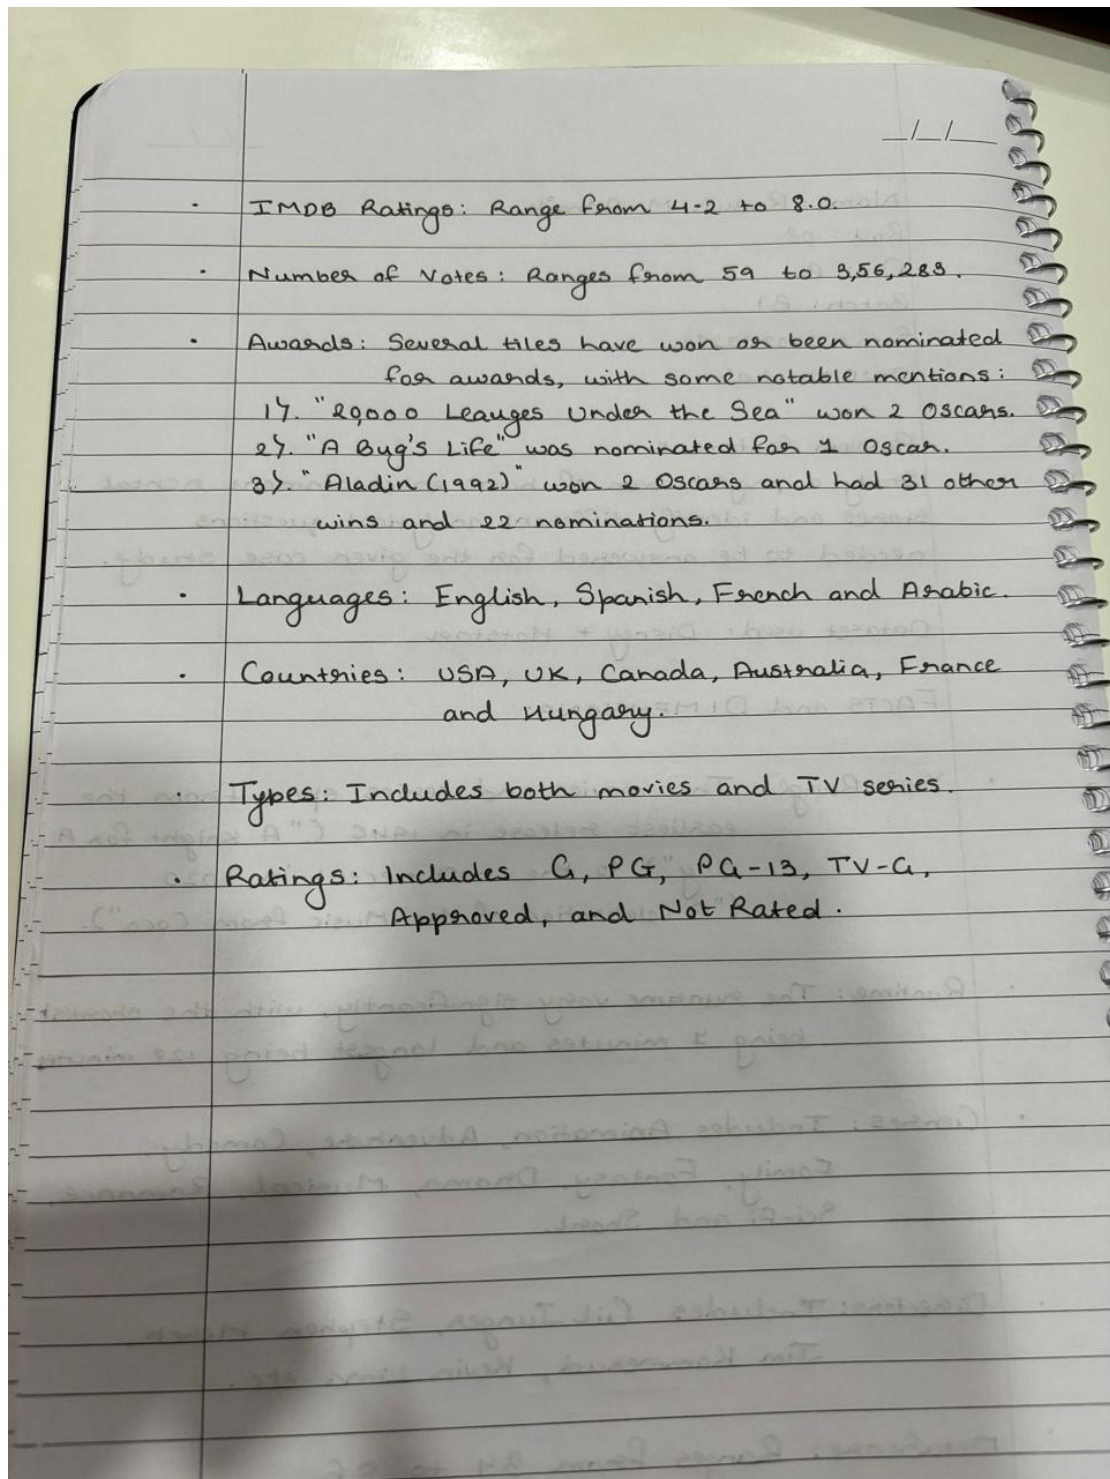 _/_/_
· IMDB Ratings: Range from 4-2 to 8.0.
· Number of Votes: Ranges from 59 to 3,56,283.
· Awards: Several tiles have won or been nominated
for awards, with some notable mentions:
1). "20,000 Leauges Under the Sea" won 2 Oscars.
2). "A Bug's Life" was nominated for 1 Oscar.
3). "Aladin (1992)" won 2 Oscars and had 31 other
wins and 22 nominations.
· Languages: English, Spanish, French and Arabic.
· Countries: USA, UK, Canada, Australia, France
and Hungary.
· Types: Includes both movies and TV series.
· Ratings: Includes G, PG, PG-13, TV-G,
Approved, and Not Rated.